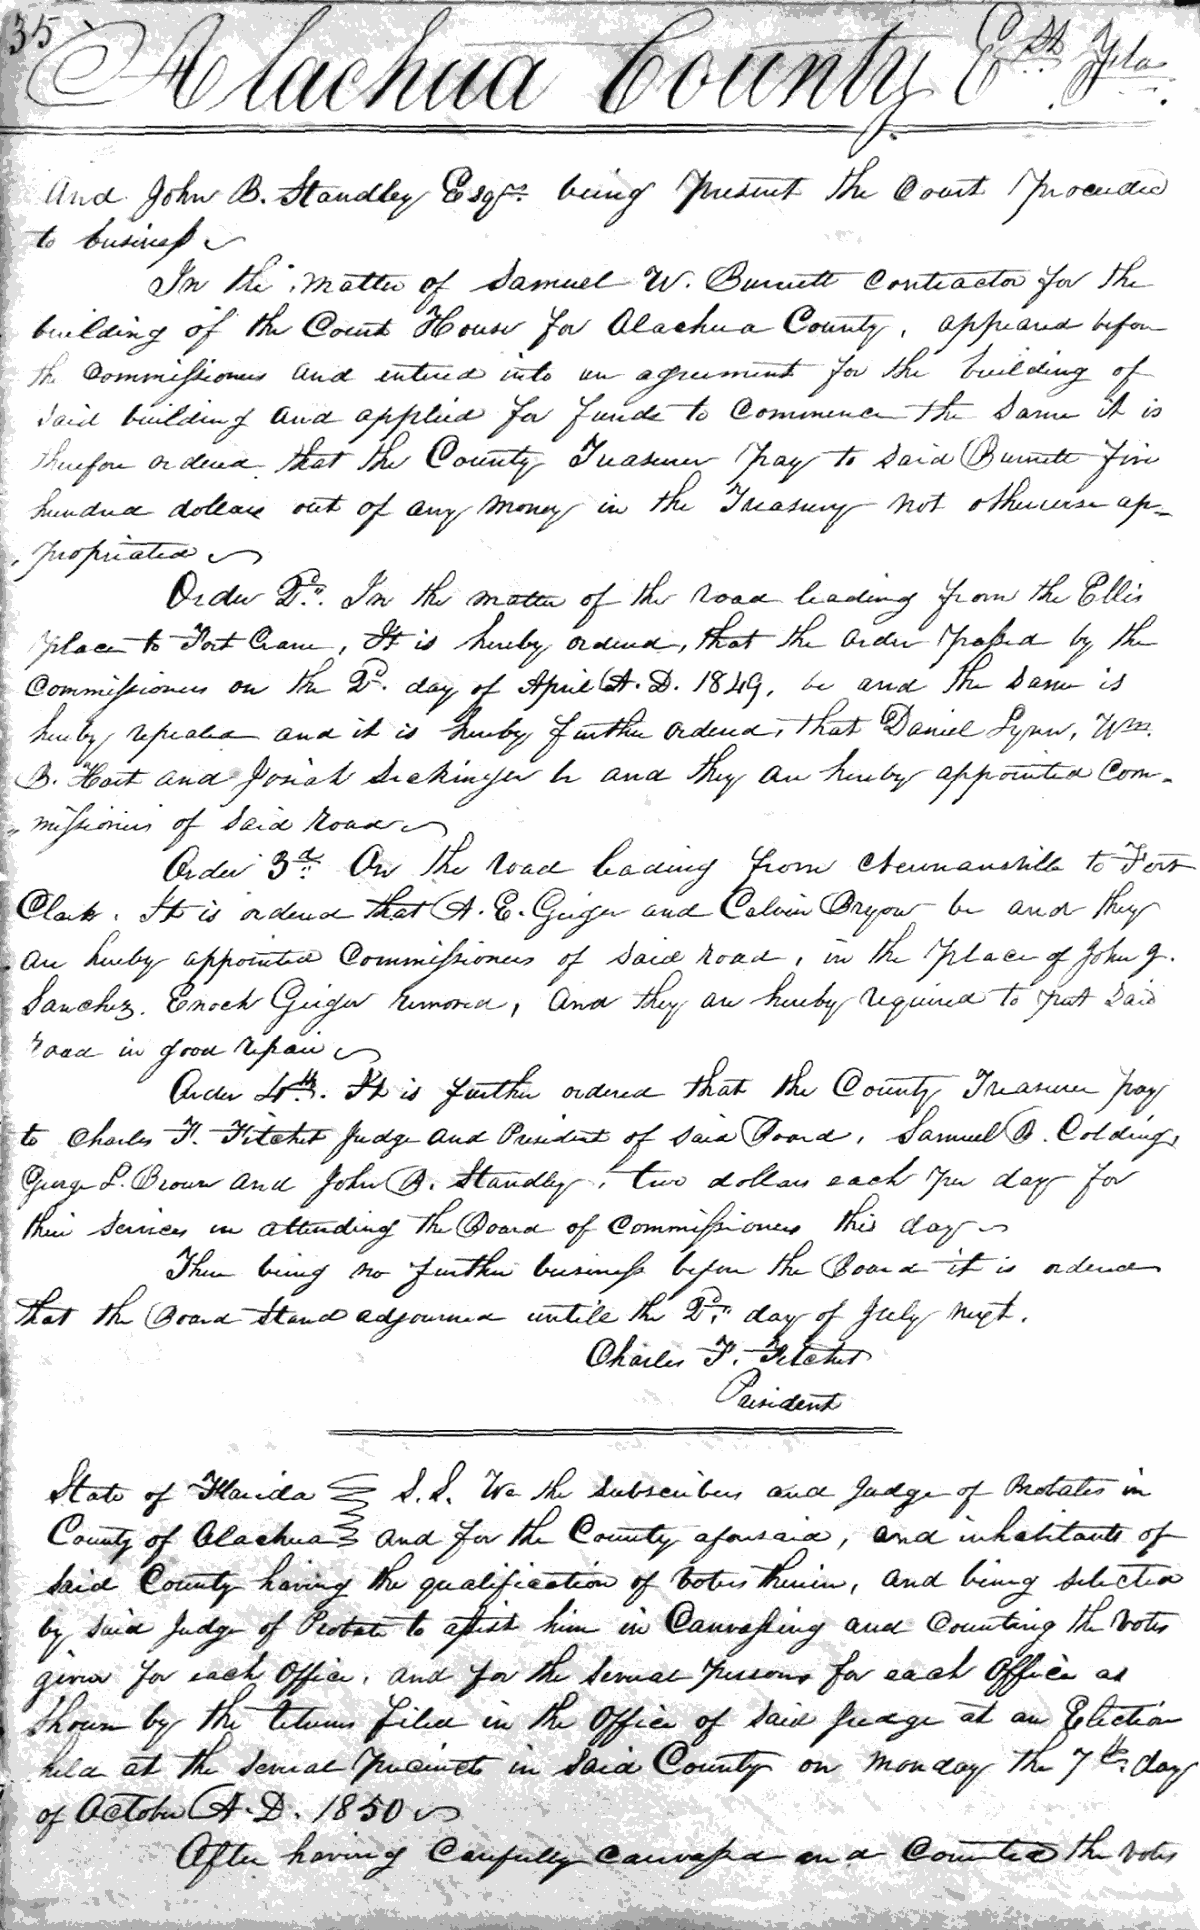 35
Alachua County Est. Fla.
And John B. Standley Esqrs. being present the Court proceeded
to business
In the matter of Samuel W. Burnett Contractor for the
building of the Court House for Alachua County, appeared before
the Commissioners and entered into an agreement for the building of
said building and applied for funds to Commence the same it is
therefore ordered that the County Treasurer pay to said Burnett five
hundred dollars out of any money in the Treasury not otherwise ap=
propriated
Order 2d. In the matter of the road leading from the Ellis
place to Fort Crane, It is hereby ordered, that the order passed by the
Commissioners on the 2d. day of April A. D. 1849, be and the same is
hereby repealed and it is hereby further ordered, that Daniel Lynn, Wm.
B. Hart and Josiah Seckinger be and they are hereby appointed Com=
missioners of said road
Order 3d. On the road leading from Newnansville to Fort
Clark. It is ordered that A. E. Geiger and Calvin Bryow be and they
are hereby appointed Commissioners of said road, in the place of John J.
Sanchez. Enoch Geiger removed, and they are hereby required to put said
road in good repair
Order 4th. It is further ordered that the County Treasurer pay
to Charles F. Fitchet Judge and President of said Board, Samuel B. Colding,
George L. Brown and John B. Standley, two dollars each per day for
their services in attending the Board of Commissioners this day
There being no further business before the Board it is ordered
that the Board stand adjourned untill the 2d. day of July next.
Charles F. Fitchet
President
State of Florida S.S. We the subscribers and Judge of Probates in
County of Alachua and for the County aforesaid, and inhabitants of
said County having the qualification of voters therein, and being selected
by said Judge of Probate to assist him in Canvassing and counting the votes
given for each office, and for the several persons for each office as
shown by the returns filed in the office of said Judge at an Election
held at the several precincts in said County on Monday the 7th. day
of October A. D. 1850
After having Carefully canvassed and Counted the votes